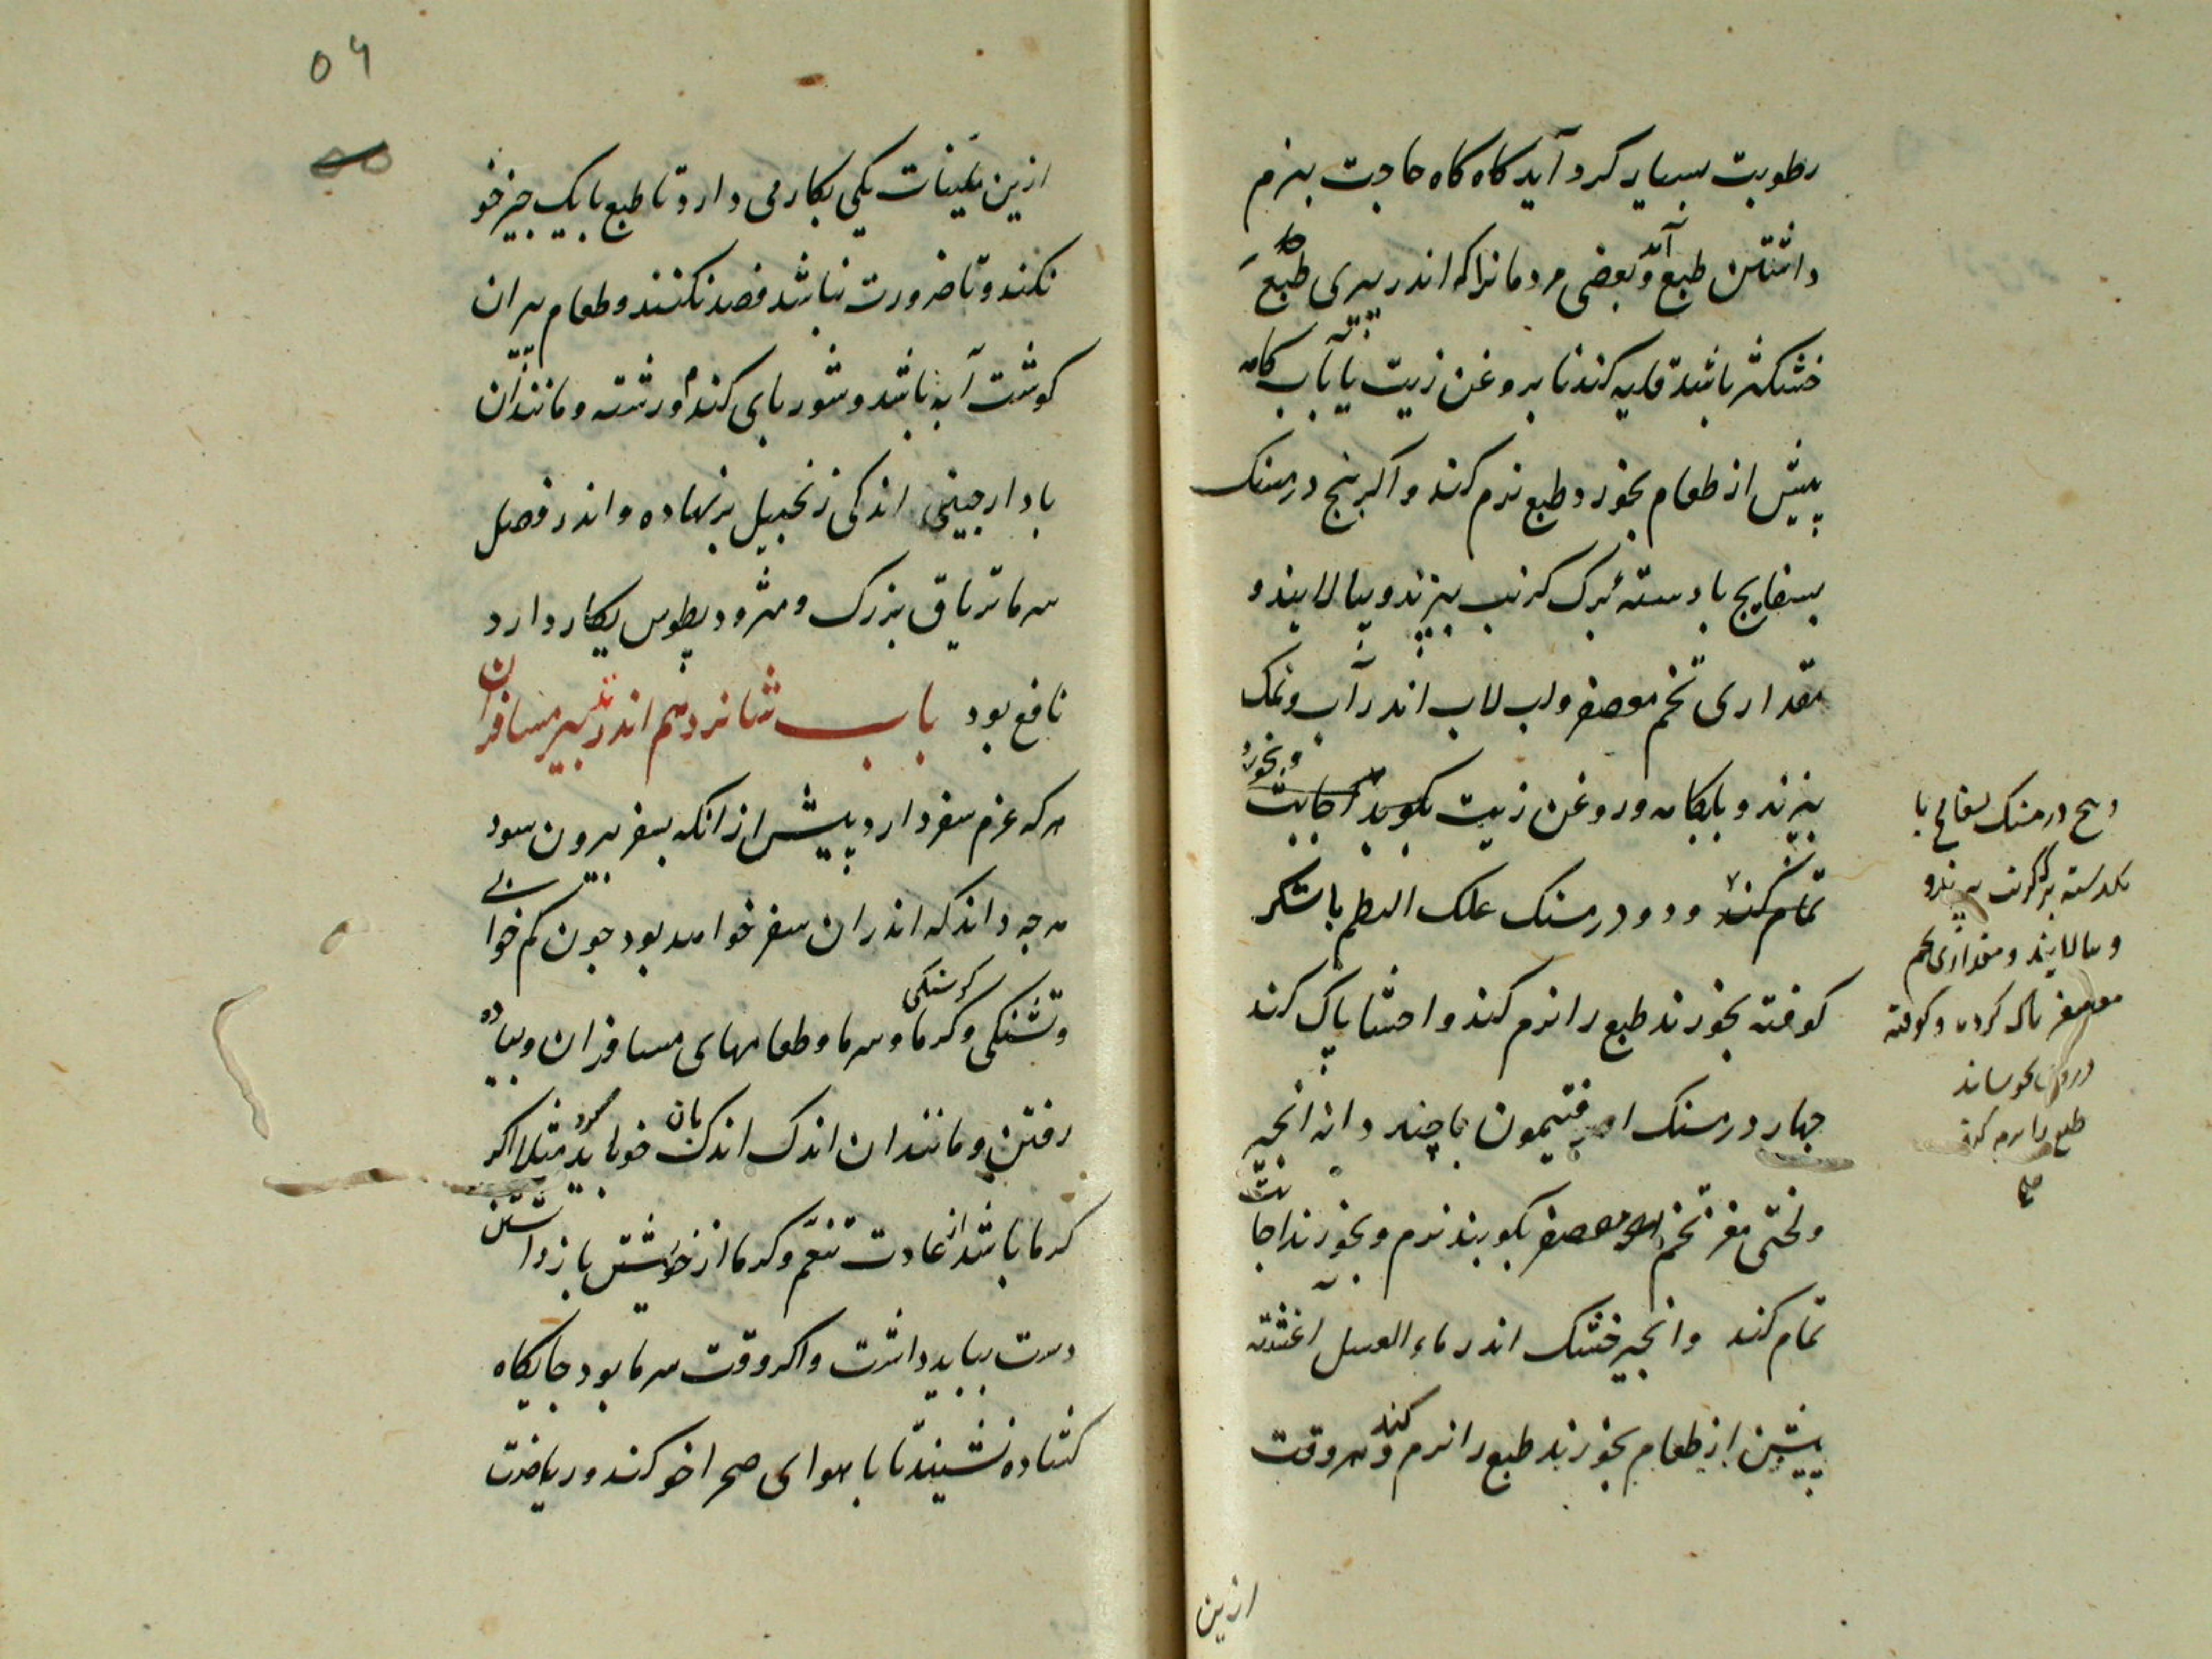 رطوبت بسیار کرد آید کاه کاه حاجت بنرم
داشتن طبع آید و بعضی مردمانرا که اندر پیری طبع
خشکتر باشد قلیه کندنا بروغن زیت یا بآب کامه
پیش از طعام بخورد طبع نرم کند و اکر پنج درمسنک
بسفایج با دسته برک کرنب بپزند و بپالایند و
مقداری تخم معصفر و لب لاب اندر آب و نمک
بپزند و بابکامه و روغن زیت بکوبند و بخورد اجابت
تمام کند و دو درمسنک علک البطم با شکر
کوفته بخورند طبع را نرم کند و احشا پاک کند
چهار درمسنک افتیمون با چند دانه انجیر
و لختی مغز تخم معصفر بکوبند نرم و بخورند اجابت
تمام کند و انجیر خشک اندر ماء العسل اغشته
پیش از طعام بخورند طبع را نرم کند و هر وقت
ازین
و پنج درمسنک بسفایج با
یکدسته برک کرنب بپزند و
و بپالایند و مقداری تخم
معصفر پاک کرده و کوفته
بجوشانند
طبع را نرم کند
صح
۵۶
ازین ملینات یکی بکار می دارد تا طبع با یک چیز خو
نکند و تا ضرورت نباشد فصد نکنند و طعام پیران
کوشت آبه باشد و شوربای کندم و رشته و مانند آن
با دارچینی اندکی زنجبیل برنهاده و اندر فصل
سرما تریاق بزرک و مثرودیطوس بکار دارد
نافع بود باب شانزدهم اندر تدبیر مسافران
هر که عزم سفر دارد پیش از انکه بسفر بیرون شود
هر چه داند که اندران سفر خواهد بود چون کم خوابی
و تشنکی و کرسنکی و کرما و سرما و طعامهای مسافران و پیاده
رفتن و مانند ان اندک اندک بان خو باید کرد مثلا اکر
کرما باشد از عادت تنعم و کرما از خویشتن باز داشتن
دست بباید داشت و اکر وقت سرما بود جایکاه
کشاده نشیند تا با هوای صحرا خو کند و ریاضت